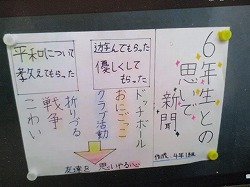 6年生との
思いで
新聞!
作成 4年1組
遊んでもらった
優しくして
もらった
ドッヂボール
おにごっこ
クラブ活動
平和について
教えてもらった
折りづる
戦争
こわい
友達 思いやる心